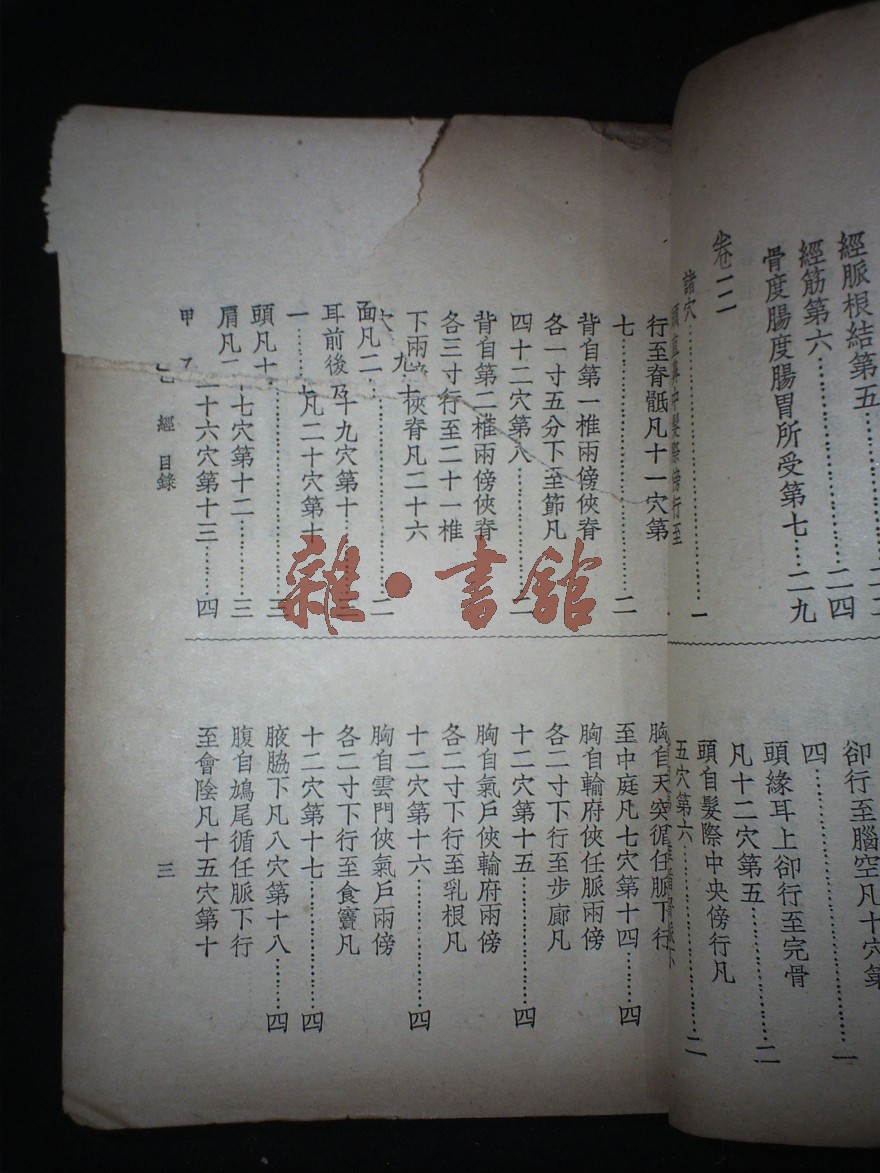 經脈根結第五
經筋第六……二四
骨度腸度腸胃所受第七…二九
卷三
諸穴……一
卻行至腦空凡十穴第
四……一
頭緣耳上卻行至完骨
凡十二穴第五……二
頭自髮際中央傍行凡
五穴第六……二
行至脊骶凡十一穴第
七……二
背自第一椎兩傍俠脊
各一寸五分下至節凡
四十二穴第八……二
背自第二椎兩傍俠脊
各三寸行至二十一椎
下兩 俠脊凡二十六
穴 九
面凡二十九穴第十……二
耳前後凡二十穴第十
一……三
頭凡十七穴第十二……三
肩凡二十六穴第十三……四
胸自天突循任脈下行
至中庭凡七穴第十四……四
胸自輸府俠任脈兩傍
各二寸下行至步廊凡
十二穴第十五……四
胸自氣戶俠輸府兩傍
各二寸下行至乳根凡
十二穴第十六……四
胸自雲門俠氣戶兩傍
各二寸下行至食竇凡
十二穴第十七……四
腋脇下凡八穴第十八……四
腹自鳩尾循任脈下行
至會陰凡十五穴第十
甲乙經 目錄
三
雜·書館